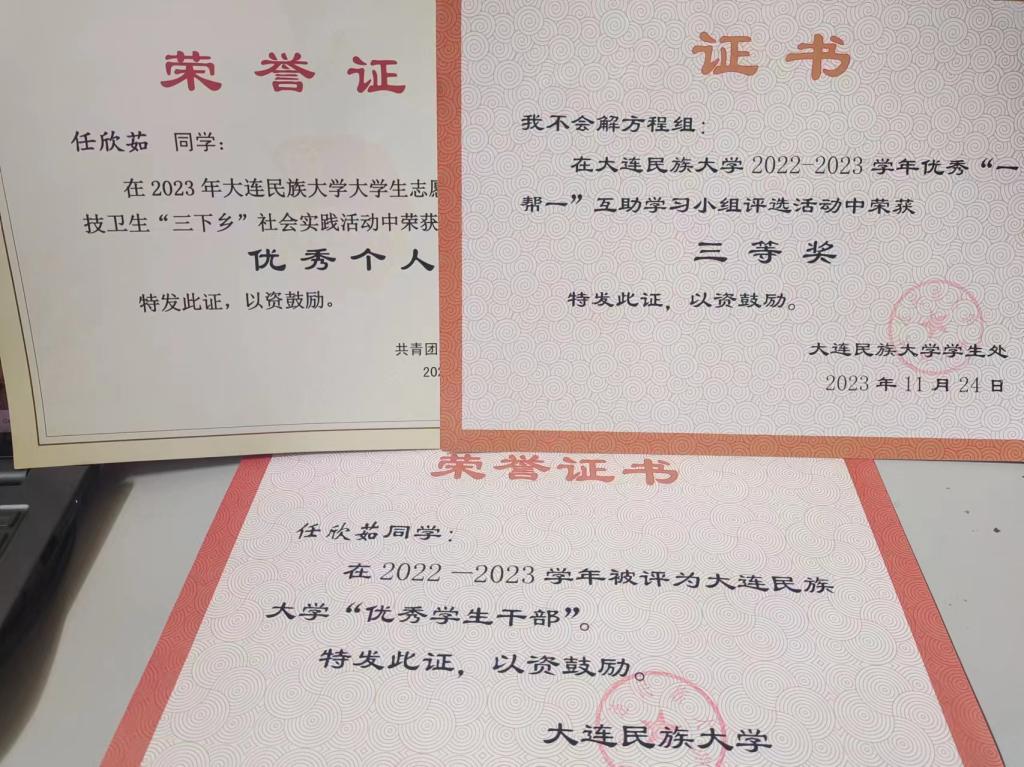 荣誉证
任欣茹 同学：
在 2023 年大连民族大学大学生志愿
技卫生“三下乡”社会实践活动中荣获
优秀个人
特发此证，以资鼓励。
共青团
202
证书
我不会解方程组：
在大连民族大学 2022-2023 学年优秀“一
帮一”互助学习小组评选活动中荣获
三等奖
特发此证，以资鼓励。
大连民族大学学生处
2023 年 11 月 24 日
荣誉证书
任欣茹同学：
在 2022 —2023 学年被评为大连民族
大学“优秀学生干部”。
特发此证，以资鼓励。
大连民族大学